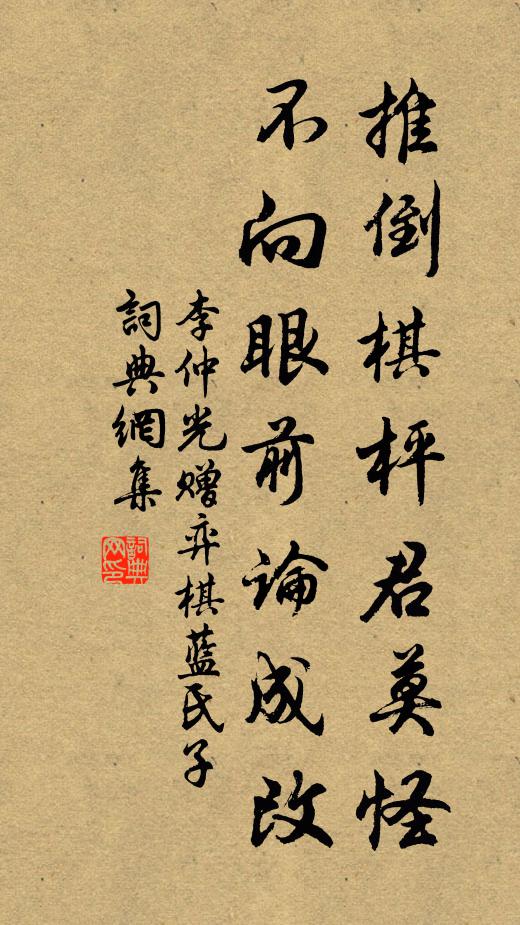 推倒棋枰君莫怪
不向眼前論成改
李仲光赠弈棋藍氏子
詞典網集
詞典
网印